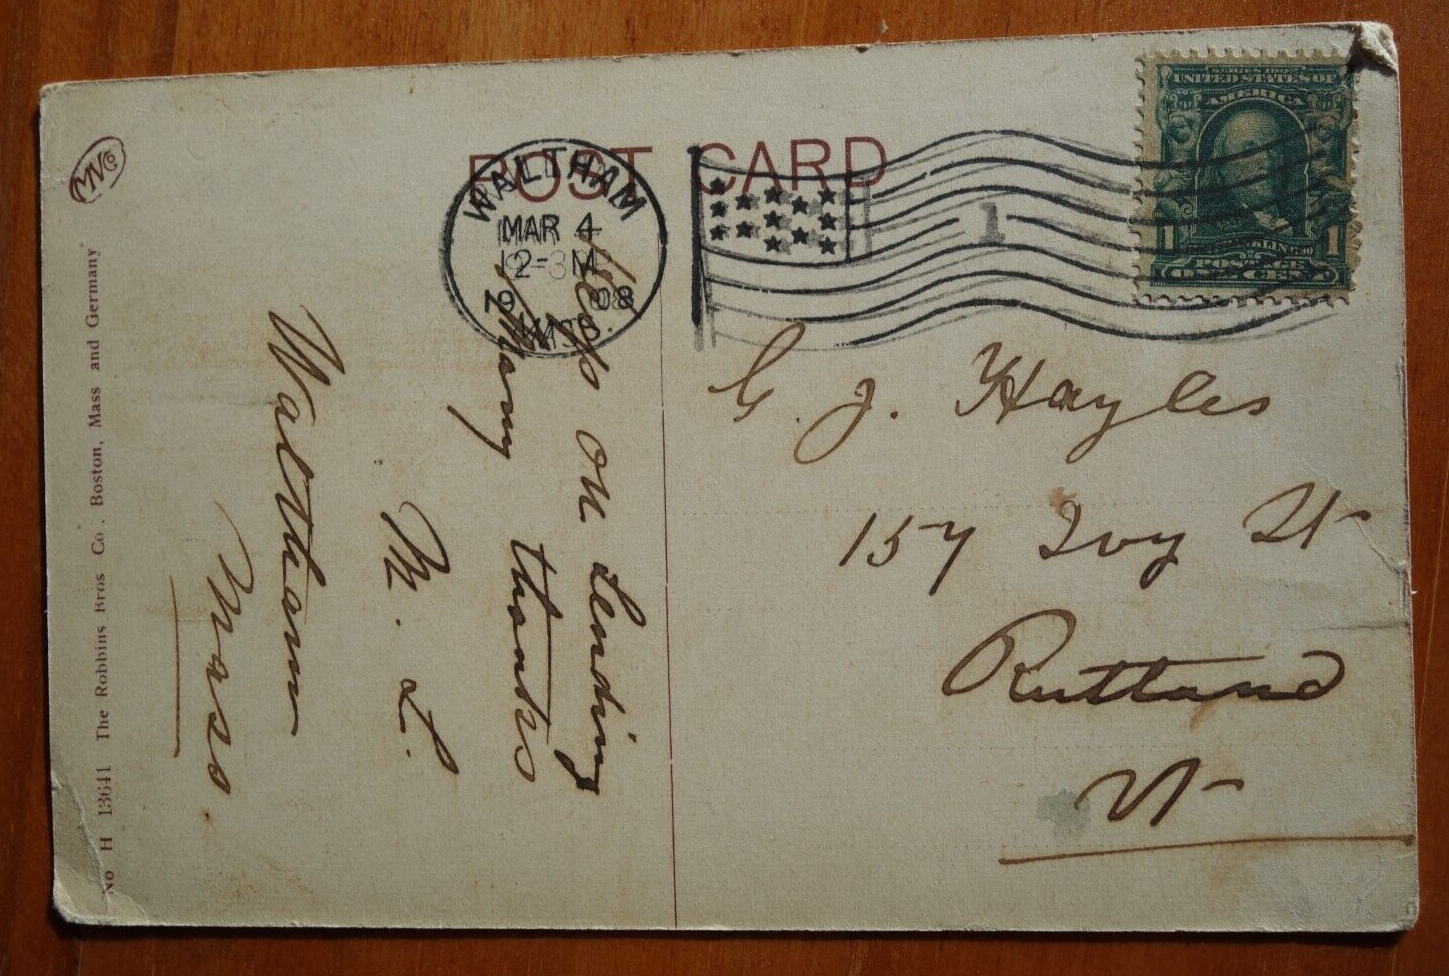 POST CARD
WALTHAM
MAR 4
12-M
19 08
MASS
1
SERIES 1902
UNITED STATES OF
AMERICA
FRANKLIN
POSTAGE
ONE CENT
1 1
G. J. Hayles
157 Ivy St
Rutland
Vt
Keep on sending
Many thanks
M. L.
Waltham
Mass.
MVCo
No H 13641 The Robbins Bros Co. Boston, Mass and Germany